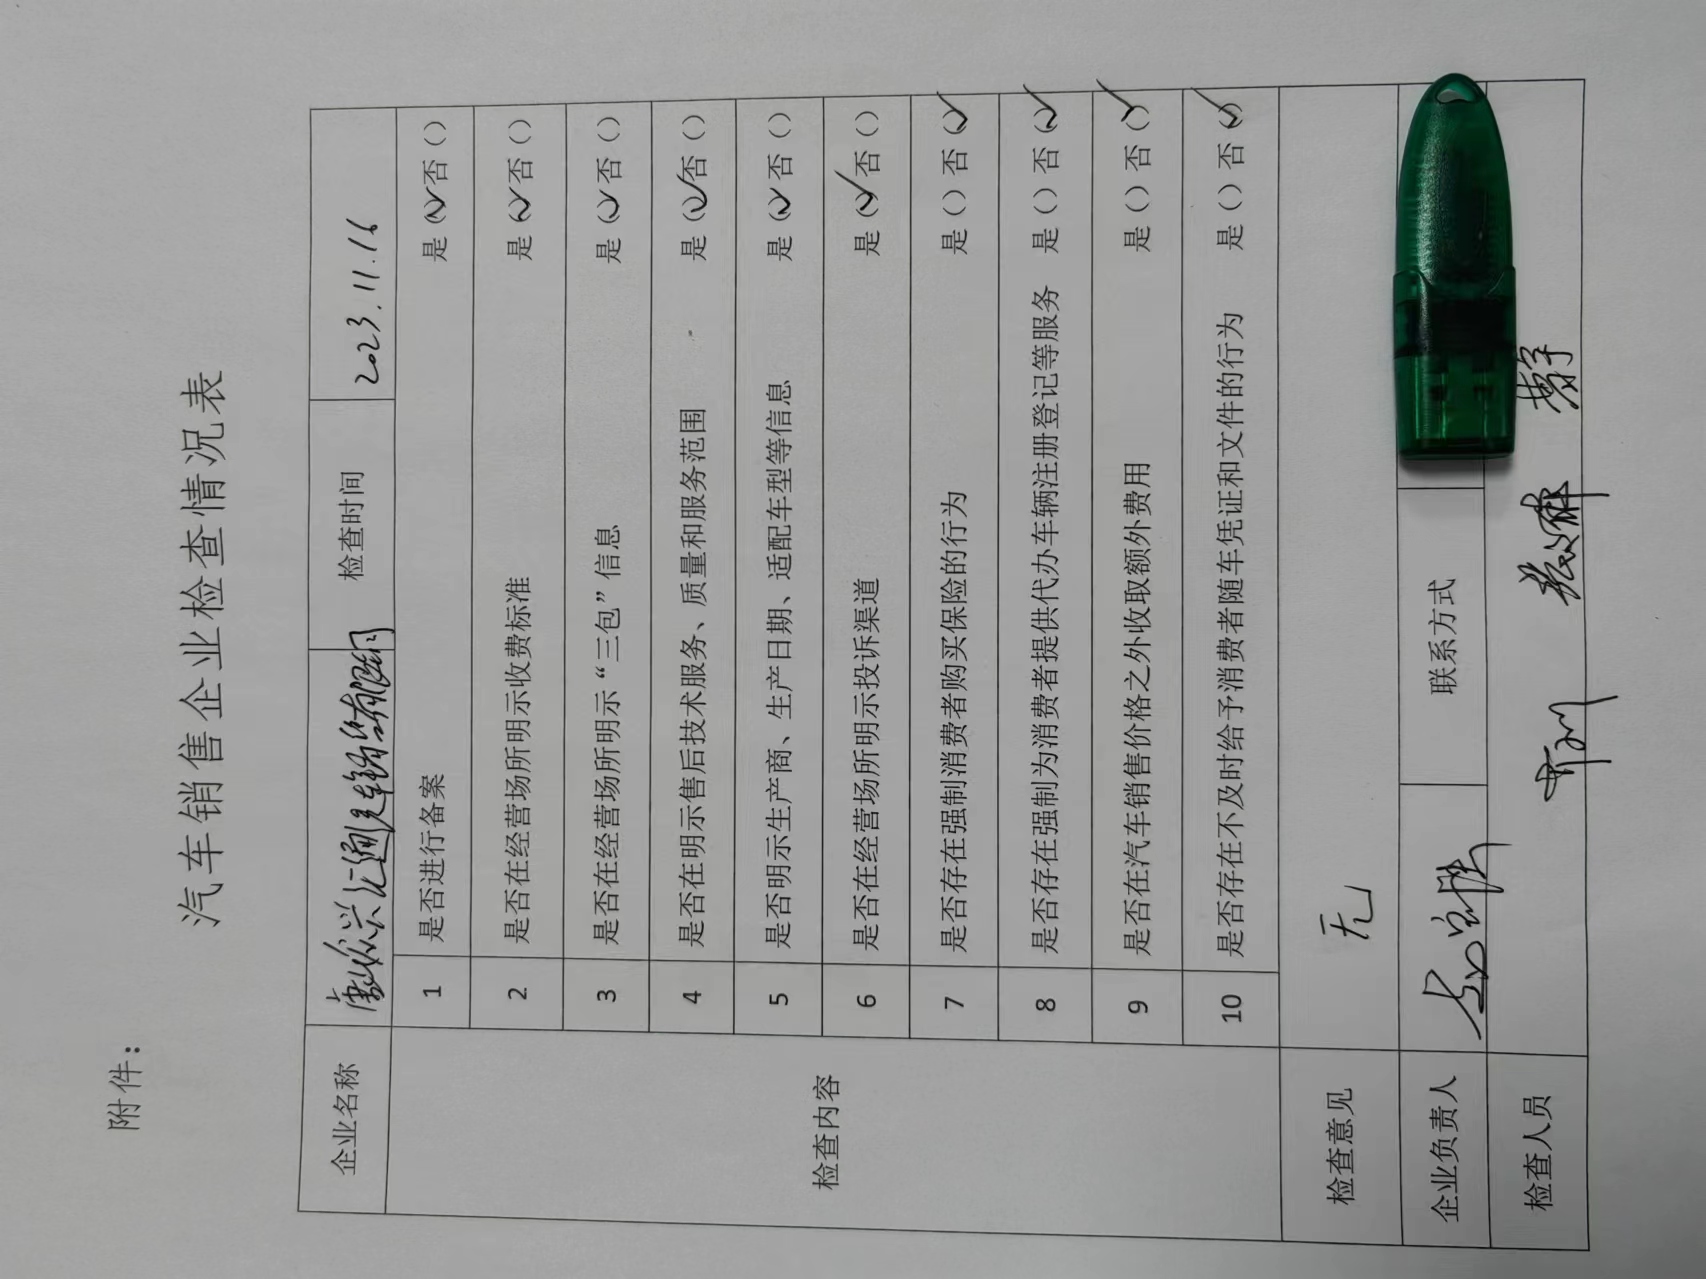 附件：
汽车销售企业检查情况表
企业名称 检查时间 2023.11.16
检查内容
1 是否进行备案 是（✓）否（）
2 是否在经营场所明示收费标准 是（✓）否（）
3 是否在经营场所明示“三包”信息 是（✓）否（）
4 是否在明示售后技术服务、质量和服务范围 是（✓）否（）
5 是否明示生产商、生产日期、适配车型等信息 是（✓）否（）
6 是否在经营场所明示投诉渠道 是（✓）否（）
7 是否存在强制消费者购买保险的行为 是（）否（✓）
8 是否存在强制为消费者提供代办车辆注册登记等服务 是（）否（✓）
9 是否在汽车销售价格之外收取额外费用 是（）否（✓）
10 是否存在不及时给予消费者随车凭证和文件的行为 是（）否（✓）
检查意见 无
企业负责人 联系方式
检查人员